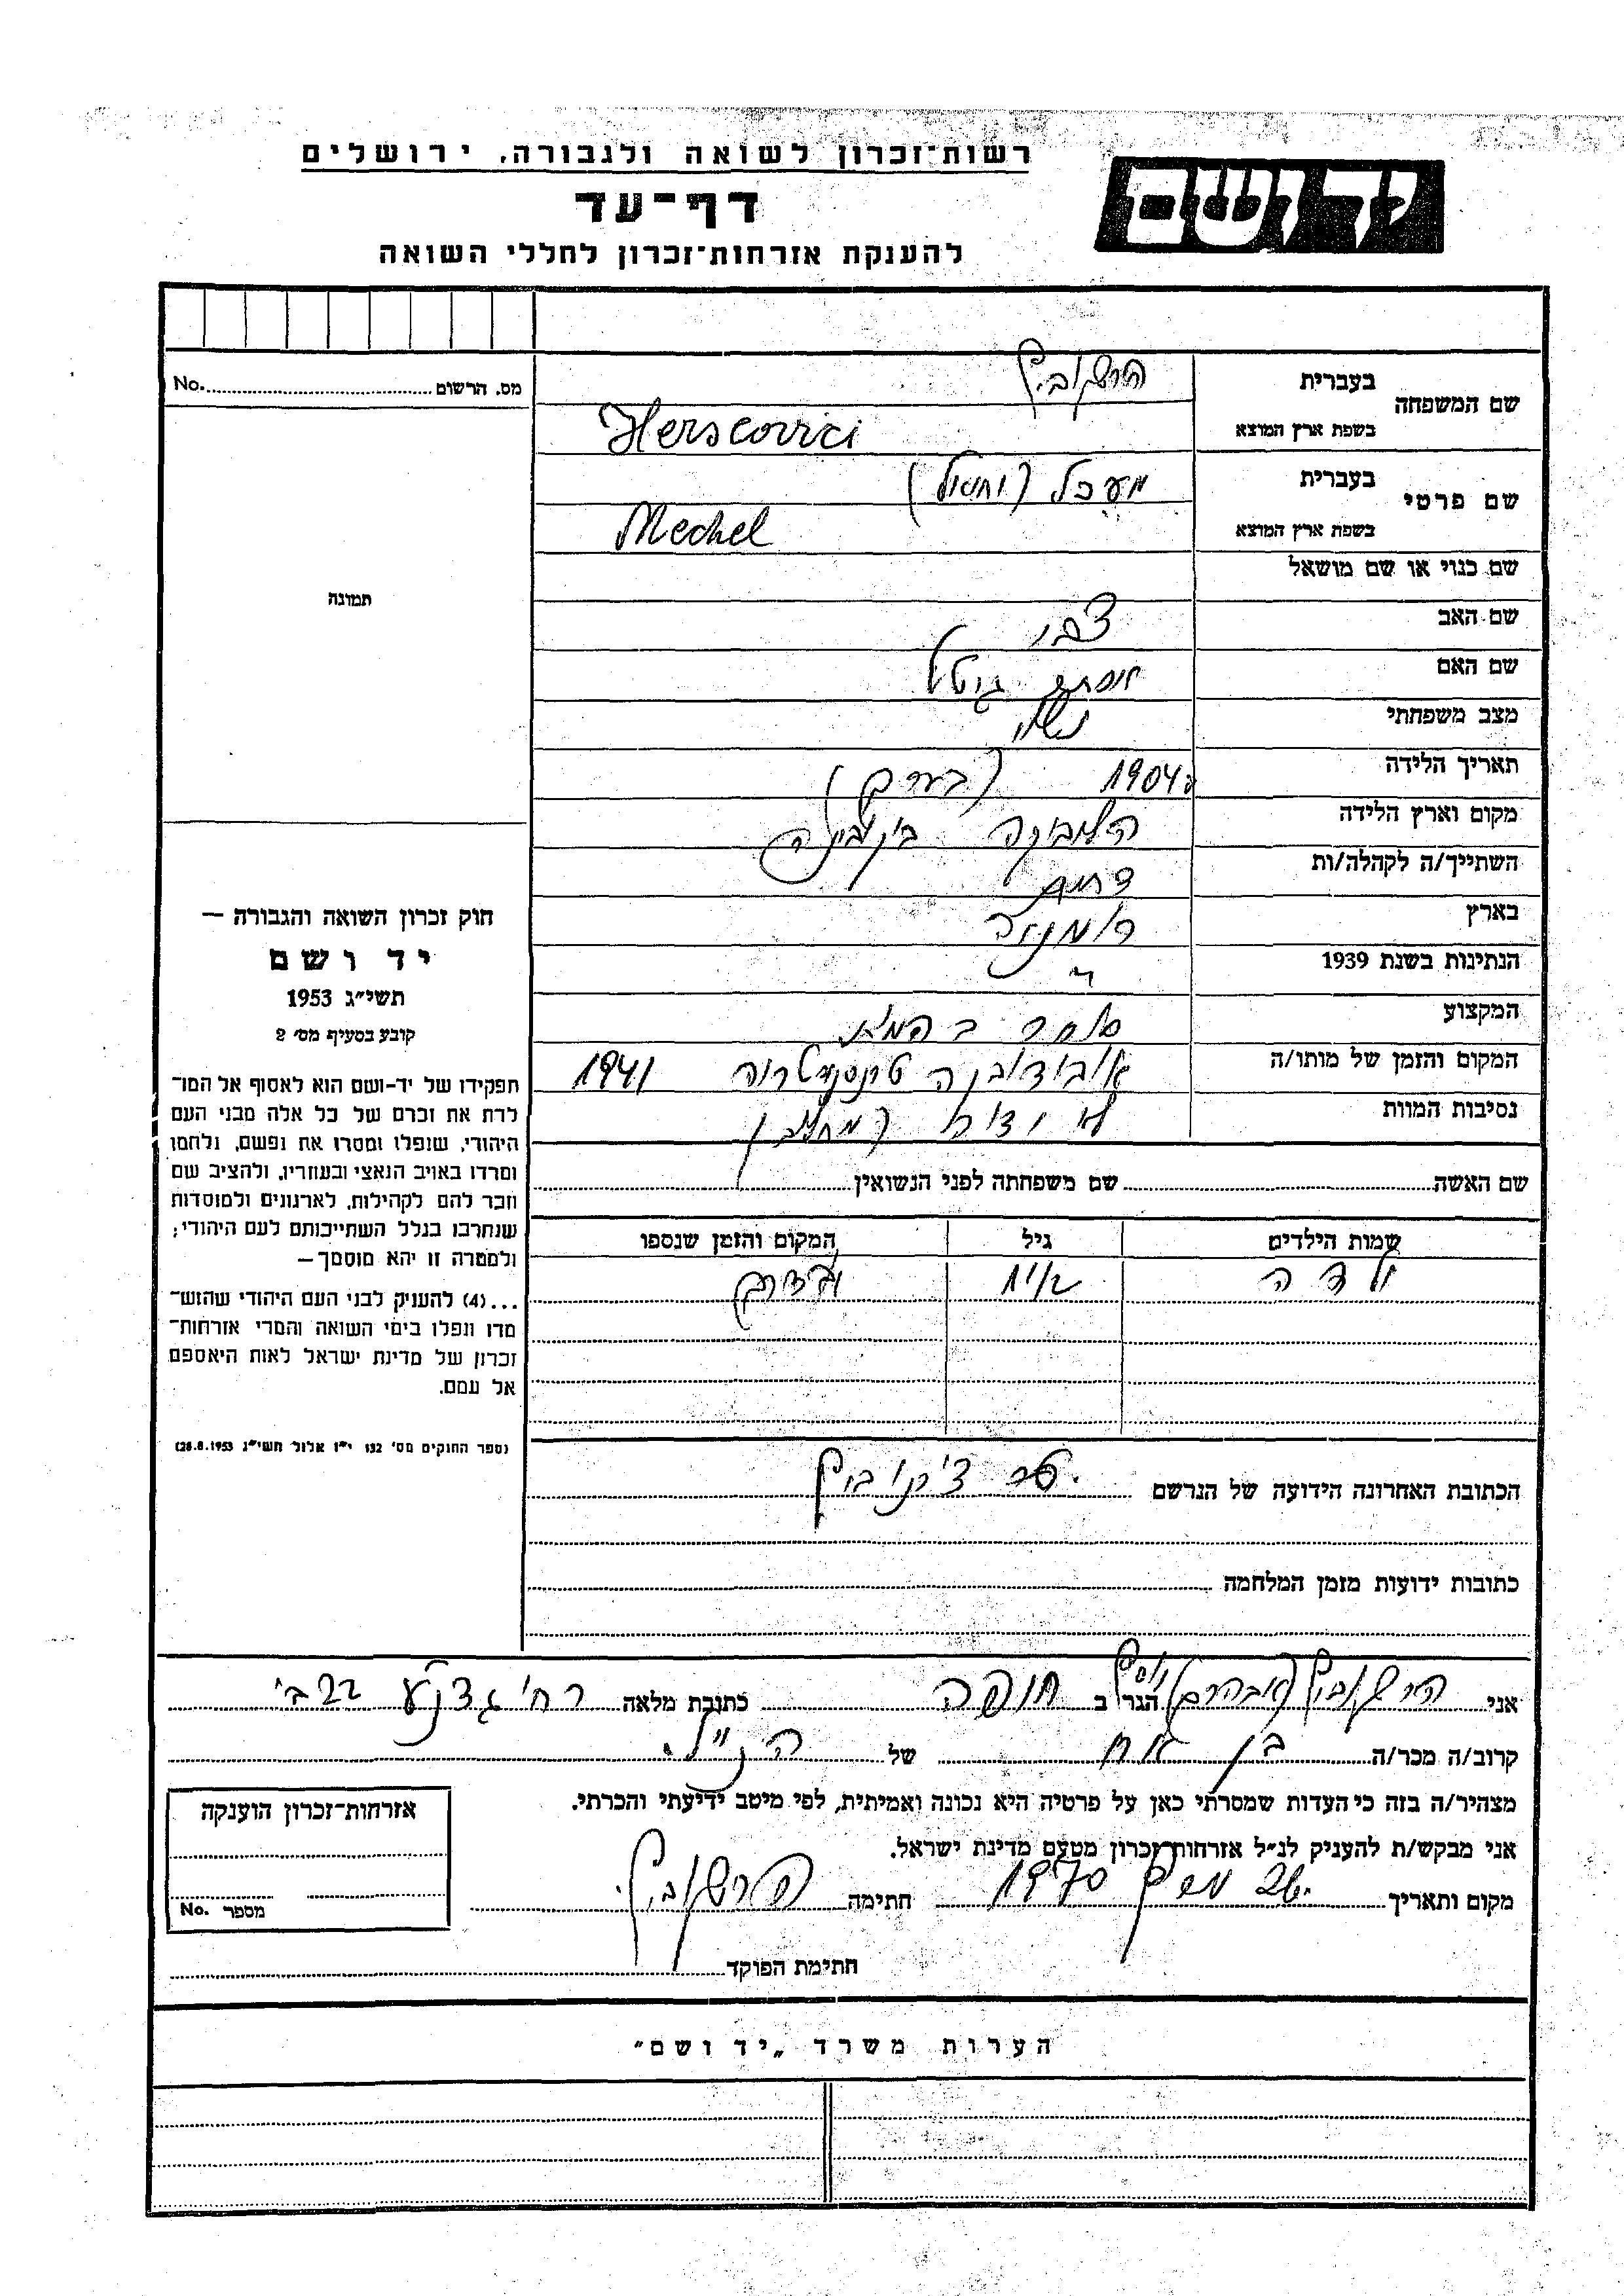 רשות־זכרון לשואה ולגבורה, ירושלים
יד ושם
דף־עד
להענקת אזרחות־זכרון לחללי השואה
מס. הרשום No.
שם המשפחה
בעברית הרשקוביץ
בשפת ארץ המוצא Herscovici
שם פרטי
בעברית מעכל
בשפת ארץ המוצא Mechel
שם כנוי או שם מושאל
תמונה
שם האב צבי
שם האם גיטל
מצב משפחתי נשוי
תאריך הלידה 1904 (בערך)
מקום וארץ הלידה בוקובינה
השתייך/ה לקהלה/ות
בארץ רומניה
הנתינות בשנת 1939 "
המקצוע סוחר
המקום והזמן של מותו/ה טרנסניסטריה 1941
נסיבות המוות לא
שם האשה שם משפחתה לפני הנשואין
שמות הילדים גיל המקום והזמן שנספו
ילדה
חוק זכרון השואה והגבורה —
יד ושם
תשי״ג 1953
קובע בסעיף מס׳ 2
תפקידו של יד-ושם הוא לאסוף אל המו־
לדת את זכרם של כל אלה מבני העם
היהודי, שנפלו ומסרו את נפשם, נלחמו
ומרדו באויב הנאצי ובעוזריו, ולהציב שם
וזכר להם לקהילות, לארגונים ולמוסדות
שנחרבו בגלל השתייכותם לעם היהודי;
ולמטרה זו יהא מוסמך—
...(4) להעניק לבני העם היהודי שהוש־
מדו ונפלו בימי השואה והמרי אזרחות־
זכרון של מדינת ישראל לאות היאספם
אל עמם.
(ספר החוקים מס׳ 132 י״ז אלול תשי״ג 28.8.1953)
הכתובת האחרונה הידועה של הנרשם
כתובות ידועות מזמן המלחמה
אני הרשקוביץ (אברהם) יוסף הגר ב חיפה כתובת מלאה רח׳ גדנע 22 ב׳
קרוב/ה מכר/ה בן אח של הנ״ל.
מצהיר/ה בזה כי העדות שמסרתי כאן על פרטיה היא נכונה ואמיתית, לפי מיטב ידיעתי והכרתי.
אני מבקש/ת להעניק לנ״ל אזרחות־זכרון מטעם מדינת ישראל.
מקום ותאריך 1970 חתימה הרשקוביץ
חתימת הפוקד
אזרחות־זכרון הוענקה
מספר No.
הערות משרד „יד ושם״